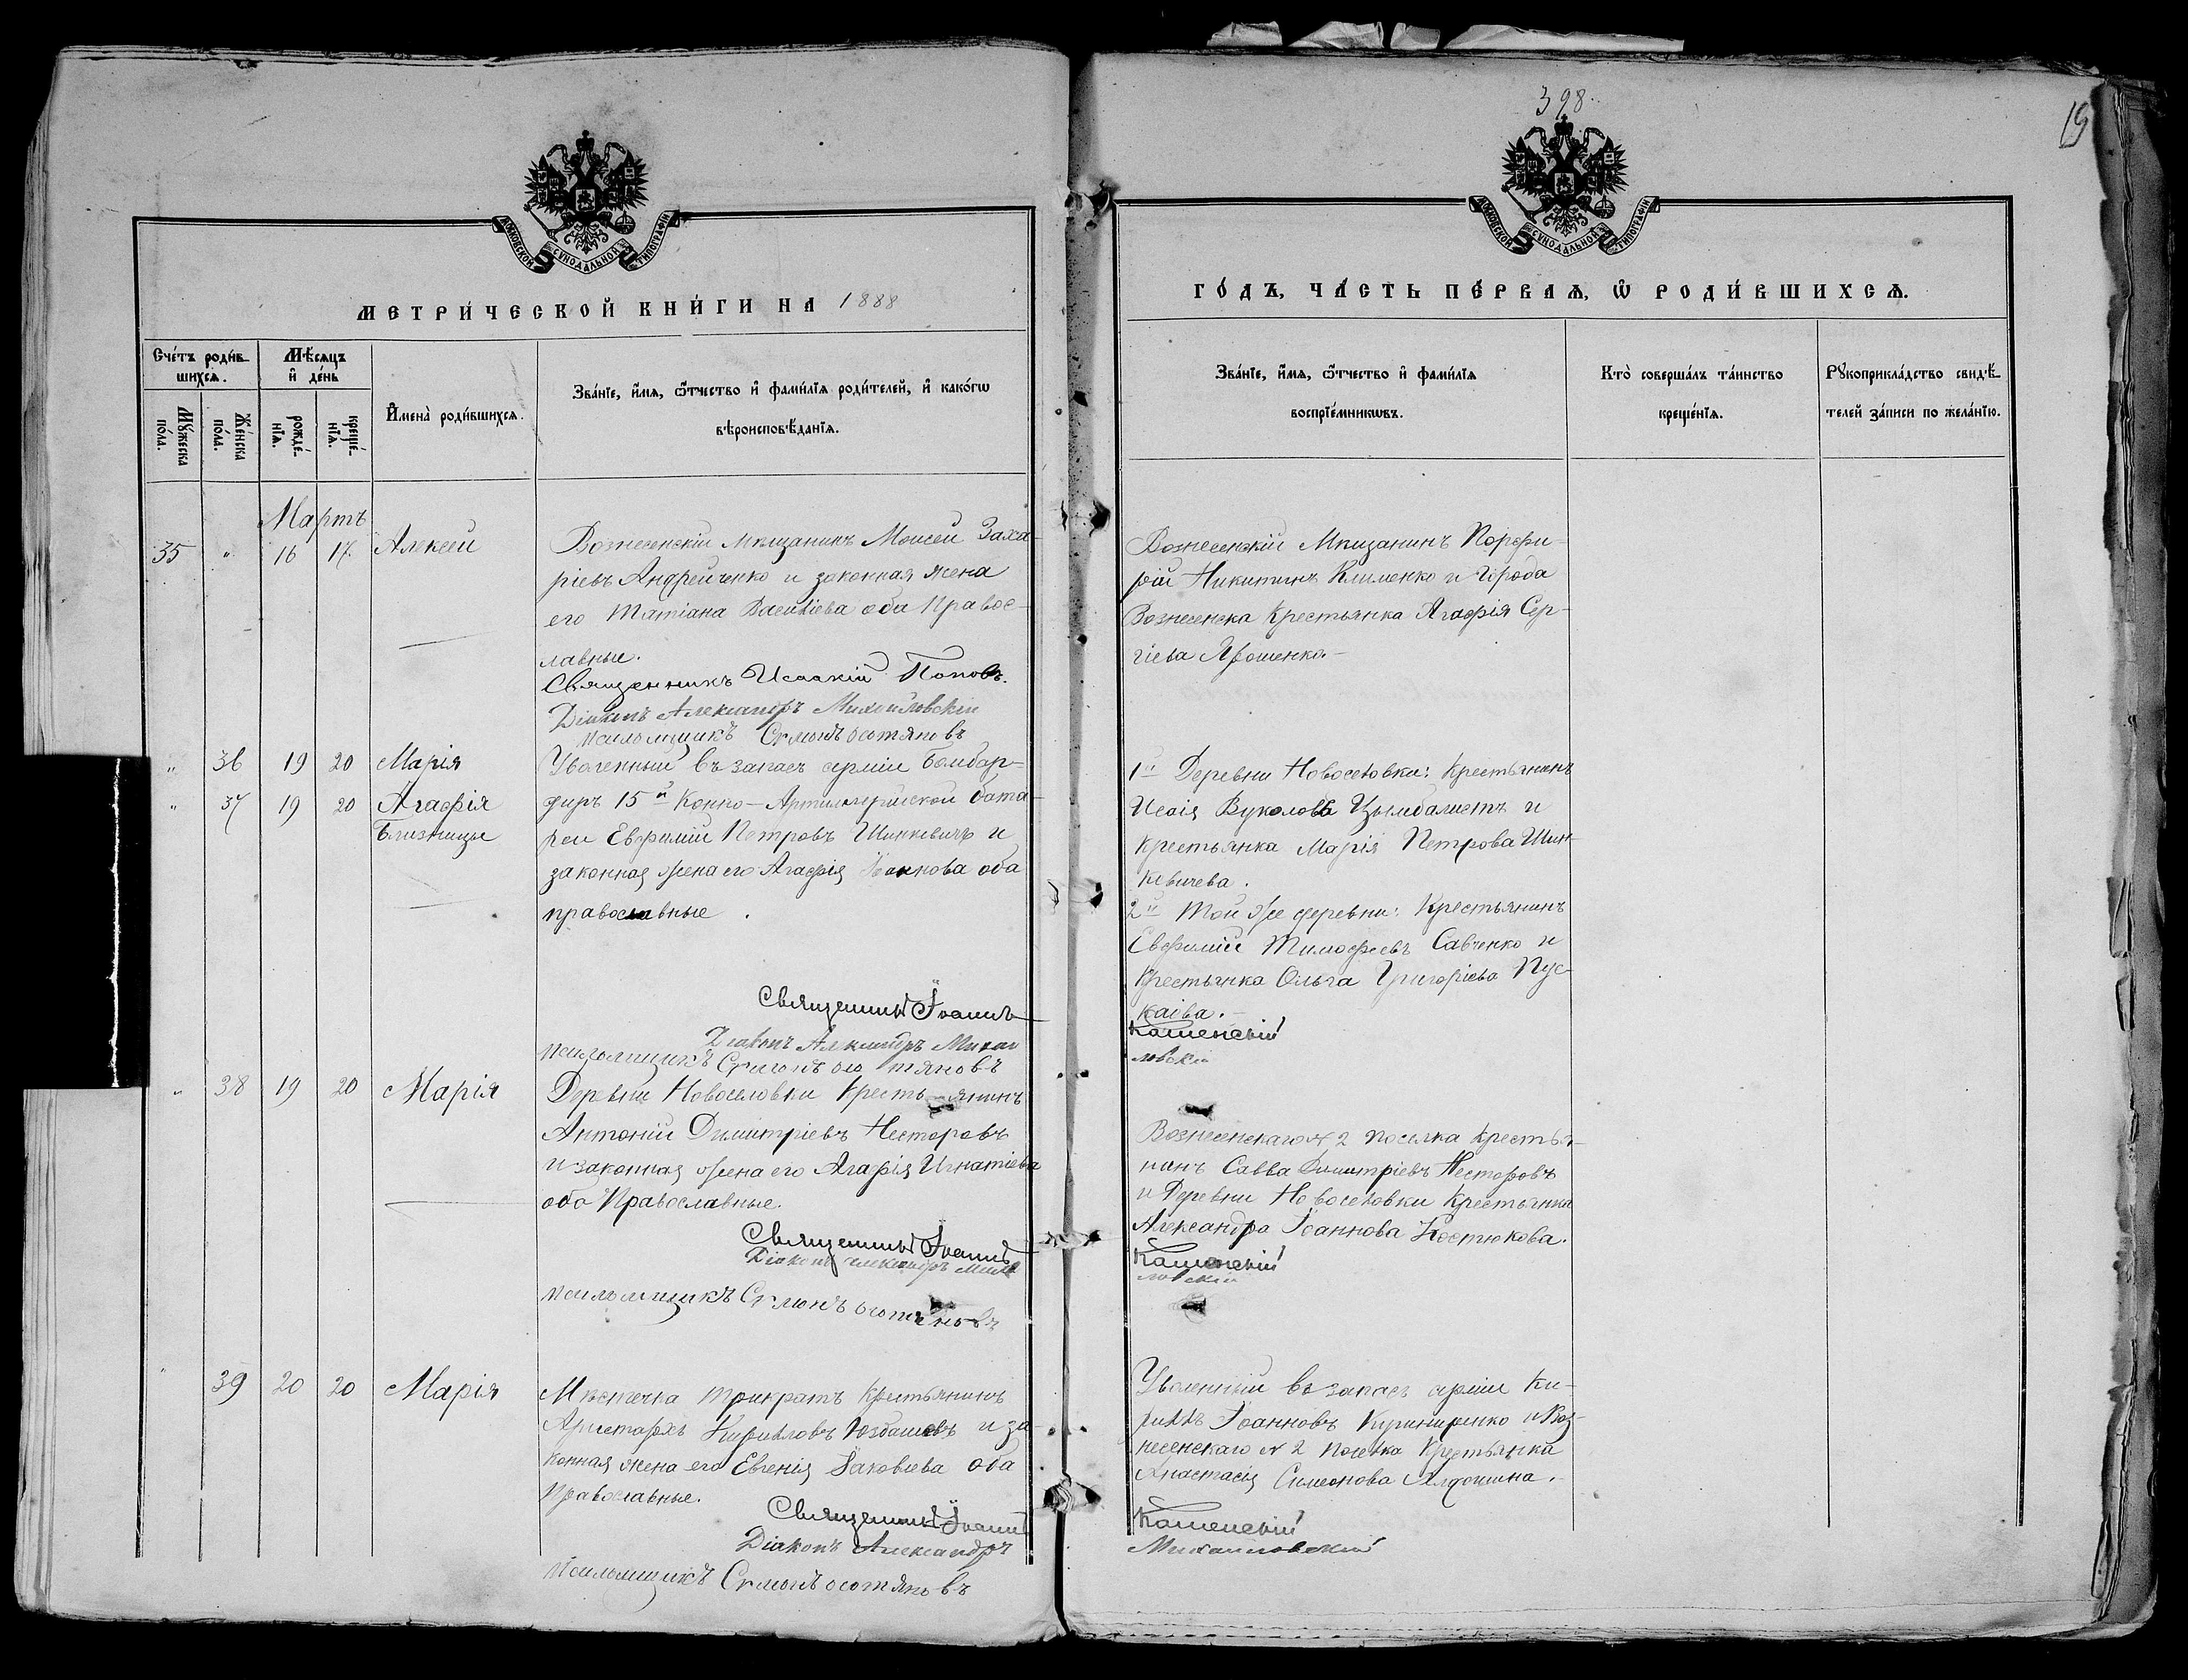 398.
19
МОСКОВСКОЙ СѴНОДАЛЬНОЙ ТИПОГРАФІИ
МЕТРИ́ЧЕСКОЙ КНИ́ГИ НА 1888
Сче́тъ роди́в-
шихсѧ.
Мѣ́сѧцъ
и҆ де́нь
Мꙋ́жеска по́ла.
Же́нска по́ла.
рожде́-
нїѧ.
креще́-
нїѧ.
И҆мена̀ роди́вшихсѧ.
Зва́нїе, и҆́мѧ, ѻ҆́тчество и҆ фами́лїѧ роди́телей, и҆ како́гѡ
вѣроисповѣ́данїѧ.
Мартъ
35 " 16 17. Алексей
Вознесенскій Мѣщанинъ Моисей Заха-
ріевъ Андрейченко и законная жена
его Татіана Василіева оба Правос-
лавные.
Священникъ Исаакій Поповъ.
Діаконъ Александръ Михайловскій
псаломщикъ
" 36 19 20 Марія
" 37 19 20 Агафія
Близницы
Уволенный въ запасъ арміи Бомбар-
диръ 15й Конно-Артиллерійской бата-
реи Евфимій Петровъ Шинкевичъ и
законная жена его Агафія Іоаннова оба
православные.
Священникъ Іоаннъ
Діаконъ Александръ Михаи
псаломщикъ
" 38 19 20 Марія
Деревни Новоселовки Крестьянинъ
Антоній Димитріевъ Несторовъ
и законная жена его Агафія Игнатіева
оба Православные.
Священникъ Іоаннъ
Діаконъ Александръ Михаи
псаломщикъ
" 39 20 20 Марія
Мѣстечка Трикратъ Крестьянинъ
Аристархъ Кирилловъ и за-
конная жена его Евгенія Іаковлева оба
Православные.
Священникъ Іоаннъ
Діаконъ Александръ
Псаломщикъ
МОСКОВСКОЙ СѴНОДАЛЬНОЙ ТИПОГРАФІИ
ГО́ДЪ, ЧА́СТЬ ПЕ́РВАѦ, Ѡ҆ РОДИ́ВШИХСѦ.
Зва́нїе, и҆́мѧ, ѻ҆́тчество и҆ фами́лїѧ
воспрїе́мникѡвъ.
Кто̀ соверша́лъ та́инство
креще́нїѧ.
Рꙋкоприкла́дство свидѣ́-
телей за́писи по жела́нїю.
Вознесенскій Мѣщанинъ Порфи-
рій Никитинъ Клименко и города
Вознесенска Крестьянка Агафія Сер-
гіева Ярошенко.-
1й Деревни Новоселовки: Крестьянинъ
Исаія Вуколовъ Цымбалистъ и
Крестьянка Марія Петрова Шин-
кевичева.
2й Той же деревни: Крестьянинъ
Евфимій Тимофеевъ Савченко и
Крестьянка Ольга Григоріева Пус-
каіва.-
Каменскій
ловскій
Вознесенскаго № 2 поселка Крестья-
нинъ Савва Димитріевъ Несторовъ
и Деревни Новоселовки Крестьянка
Александра Іоаннова Костюкова.
Каменскій
ловскій
Уволенный въ запасъ арміи Ки-
риллъ Іоанновъ и Воз-
несенскаго № 2 поселка Крестьянка
Анастасія Симеонова Алдошина.-
Каменскій
Михаиловскій